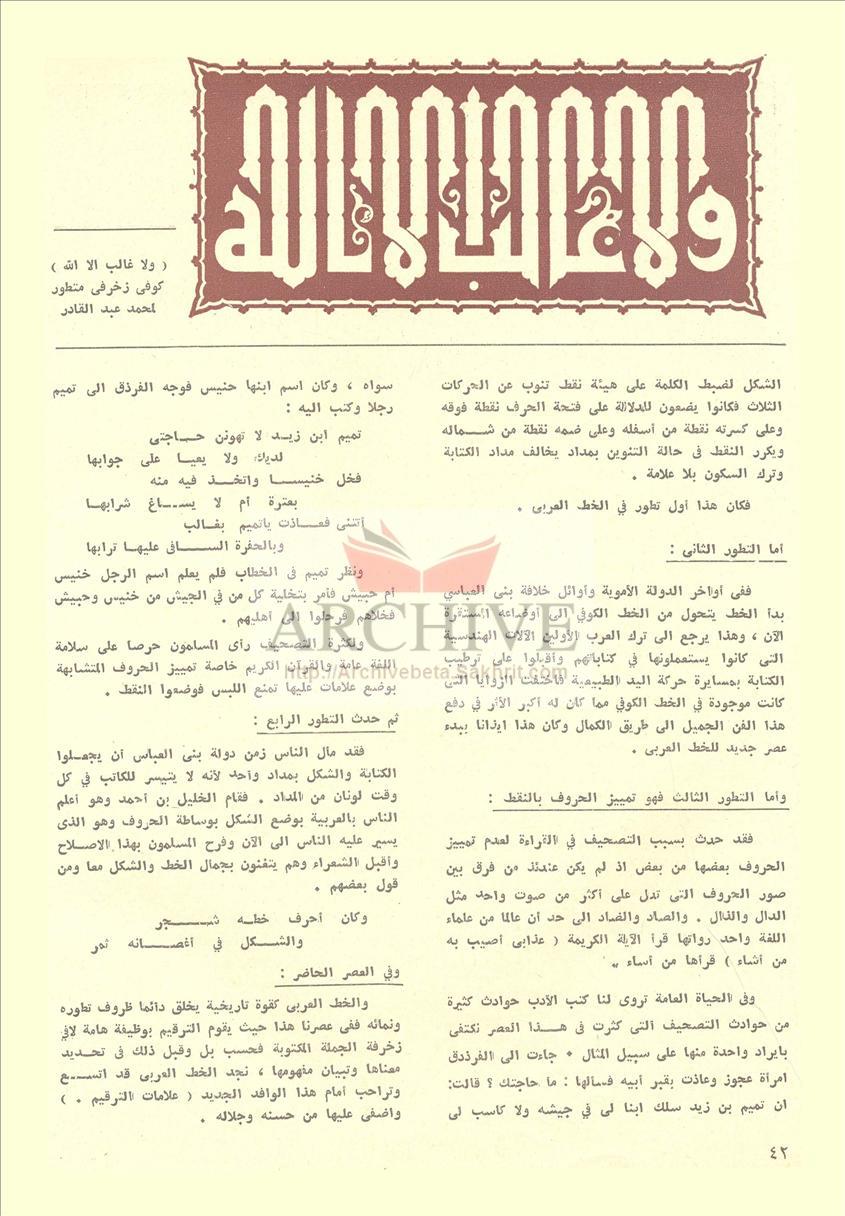 ولا غالب الا الله
( ولا غالب الا الله )
كوفى زخرفى متطور
لمحمد عبد القادر
الشكل لضبط الكلمة على هيئة نقط تنوب عن الحركات
الثلاث فكانوا يضعون للدلالة على فتحة الحرف نقطة فوقه
وعلى كسرته نقطة من أسفله وعلى ضمه نقطة من شـــماله
ويكرر النقط فى حالة التنوين بمداد يخالف مداد الكتابة
وترك السكون بلا علامة .
فكان هذا أول تطور في الخط العربى .
أما التطور الثانى :
ففى أواخر الدولة الأموية وأوائل خلافة بنى العباسي
بدأ الخط يتحول من الخط الكوفي الى أوضاعه المستقرة
الآن ، وهذا يرجع الى ترك العرب الأولين الآلات الهندسية
التى كانوا يستعملونها في كتاباتهم وأقبلوا على ترطيب
الكتابة بمسايرة حركة اليد الطبيعية فاختفت الزوايا التى
كانت موجودة في الخط الكوفي مما كان له أكبر الأثر في دفع
هذا الفن الجميل الى طريق الكمال وكان هذا ايذانا ببدء
عصر جديد للخط العربى .
وأما التطور الثالث فهو تمييز الحروف بالنقط :
فقد حدث بسبب التصحيف في القراءة لعدم تمييز
الحروف بعضها من بعض اذ لم يكن عندئذ من فرق بين
صور الحروف التى تدل على أكثر من صوت واحد مثل
الدال والذال . والصاد والضاد الى حد أن عالما من علماء
اللغة واحد رواتها قرأ الآية الكريمة ( عذابى أصيب به
من أشاء ) قرأها من أساء ..
وفى الحياة العامة تروى لنا كتب الأدب حوادث كثيرة
من حوادث التصحيف التى كثرت فى هـــذا العصر نكتفى
بايراد واحدة منها على سبيل المثال . جاءت الى الفرذدق
امرأة عجوز وعاذت بقبر أبيه فسألها : ما حاجتك ؟ قالت:
ان تميم بن زيد سلك ابنا لى في جيشه ولا كاسب لى
سواه ، وكان اسم ابنها حنيس فوجه الفرذق الى تميم
رجلا وكتب اليه :
تميم ابن زيـد لا تهونن حـــاجتى
لديك ولا يعيـا على جوابها
فخل خنيســـا واتخـــذ فيه منه
بعترة أم لا يســـاغ شرابهـا
أتتنى فعـــاذت ياتميم بغـالب
وبالحفرة الســـافى عليهـا ترابها
ونظر تميم فى الخطاب فلم يعلم اسم الرجل خنيس
أم حبيش فأمر بتخلية كل من في الجيش من خنيس وحبيش
فخلاهم فرحلوا الى أهليهم .
ولكثرة التصحيف رأى المسلمون حرصا على سلامة
اللغة عامة والقرآن الكريم خاصة تمييز الحروف المتشابهة
بوضع علامات عليها تمنع اللبس فوضعوا النقط .
ثم حدث التطور الرابع :
فقد مال الناس زمن دولة بنى العباس أن يجعـلوا
الكتابة والشكل بمداد واحد لأنه لا يتيسر للكاتب في كل
وقت لونان من المداد . فقام الخليل بن أحمد وهو أعلم
الناس بالعربية بوضع الشكل بوساطة الحروف وهو الذى
يسير عليه الناس الى الآن وفرح المسلمون بهذا الاصـلاح
وأقبل الشعراء وهم يتغنون بجمال الخط والشكل معا ومن
قول بعضهم .
وكان أحرف خطـه شـــجر
والشـــكل في أغصـــانه ثمر
وفي العصر الحاضر :
والخط العربى كقوة تاريخية يخلق دائما ظروف تطوره
ونمائه ففى عصرنا هذا حيث يقوم الترقيم بوظيفة هامة لافي
زخرفة الجملة المكتوبة فحسب بل وقبل ذلك فى تحـديد
معناها وتبيان مفهومها ، نجد الخط العربى قد اتســـع
وتراحب أمام هذا الوافد الجديد ( علامات الترقيم . )
واضفى عليها من حسنه وجلاله .
٤٢
ARCHIVE
http://Archivebeta.Sakhrit.com